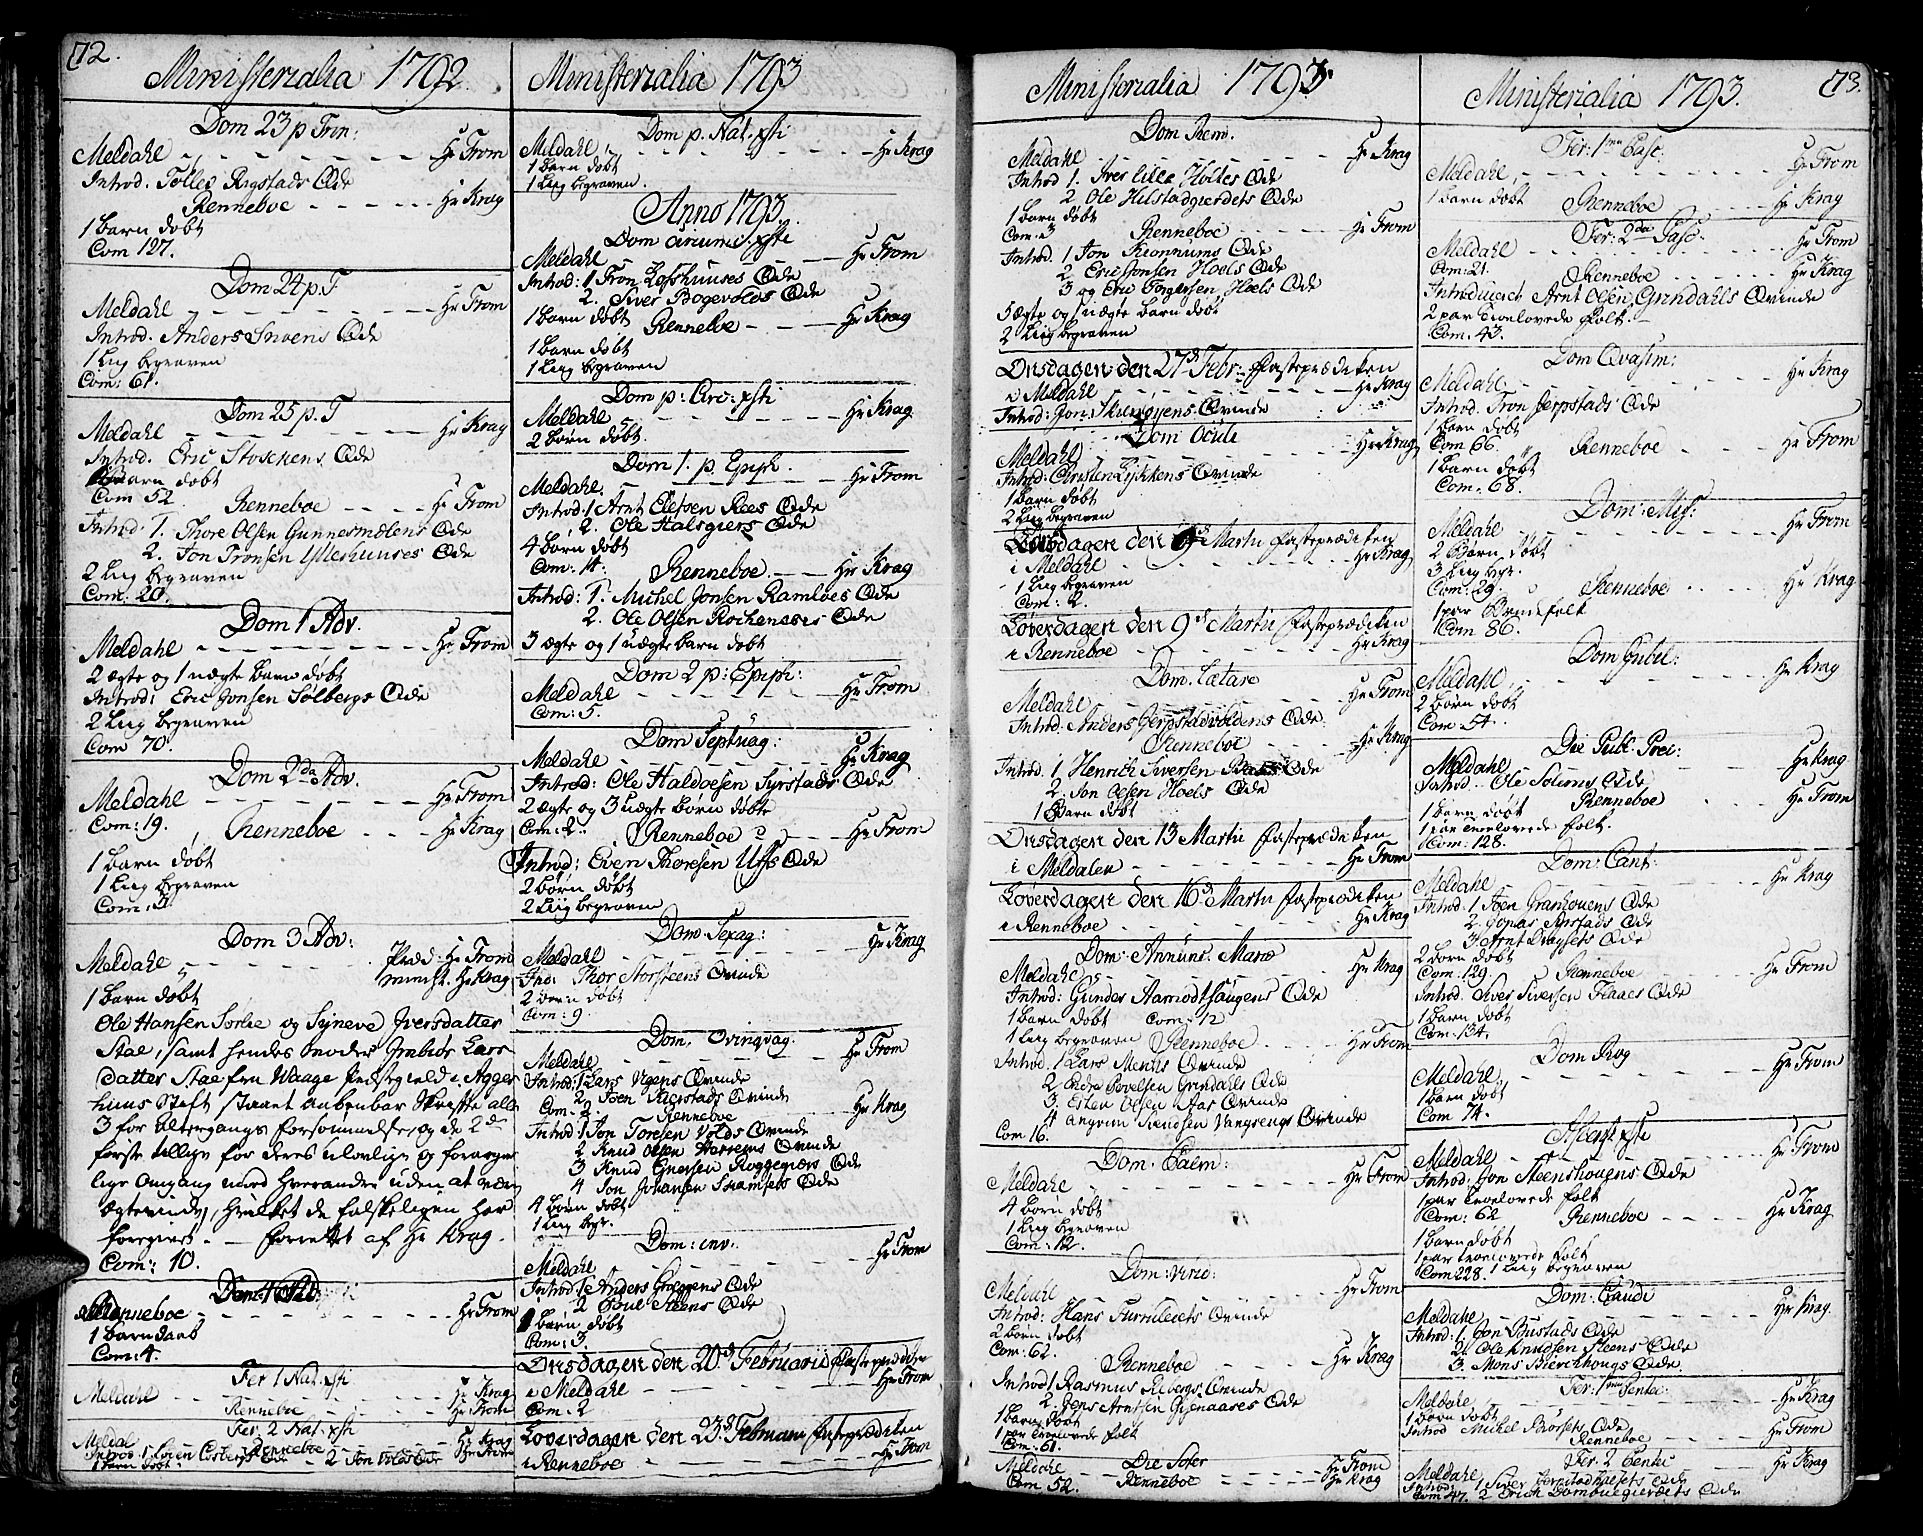 72.
Ministerialia 1792
Dom 23 p Trin:
Meldahl - - - - - Hr From
Introd. Tolles Rigstads Qde
Renneboe - - - - Hr Krag
1 barn döbt
Com 127.
Dom 24 p. T
Meldahl - - - - - Hr From
Introd. Anders Snoens Qde
1 Liig begraven
Com: 61.
Dom 25 p. T
Meldahl - - - - - Hr Krag
Introd. Eric Stockens Qde
barn döbt
Com 52
Renneboe - - - - Hr From
Introd: 1. Thore Olsen Gunnesmoelens Qde
2. Jon Tronsen Ydsehuuses Qde
2 Liig begraven
Com: 20.
Dom 1 Adv.
Meldahl - - - - - Hr From
2 ægte og 1 uægte barn döbt
Introd: Eric Jonsen Sølbergs Qde
2 Liig begraven
Com 70.
Dom 2da Adv.
Meldahl - - - - - Hr From
Com: 19.
Renneboe - - - - Hr Krag
1 barn döbt
1 Liig begraven
Com: 5
Dom 3 Adv:
Meldahl - - - - Præd. Hr From
minist. Hr Krag
1 barn döbt
Ole Hansen Sørlie og Synneve Iversdatter
Stae, samt hendes moder Ingebiør Lars
datter Stae fra Waage Præstegield i Agger
huus Stift staaet aabenbar Skrifte alle
3 for Altergangs forsømmelse, og de 2de
første tillige for deres ulovlige og forarge
lige Omgang med hverandre uden at være
ægteviede, hvilket de falskeligen har
foregivet. - forrettet af Hr Krag.
Com: 10.
Dom. 4 Adv.
Renneboe - - - - - Hr From
1 barn døbt
Com: 4.
Fer 1 Nat. xsti
Meldahl - - - - - Hr Krag
Renneboe - - - - Hr From
Fer. 2 Nat. xsti
Meldal - - - - - Hr Krag
Renneboe - - - - Hr From
1 barn döbt
Ministerialia 1793
Dom p. Nat. xsti
Meldahl - - - - - Hr Krag
1 barn döbt
1 Liig begraven.
Anno 1793.
Dom circumc. xsti
Meldahl - - - - - Hr From
Introd: 1 Tron Lofshuuses Qde
2. Siver Bogevolds Qde
1 barn döbt
Renneboe - - - - Hr Krag
1 barn döbt
1 Liig begraven
Dom p: Circ: xsti
Meldahl - - - - - Hr Krag
2 børn døbt.
Dom 1. p. Epiph.
Meldahl. - - - - - Hr From
Introd: 1 Arnt Elefsen Rees Qde
2. Ole Halsgiers Qde
4 børn døbt
Com: 14.
Renneboe. - - - Hr Krag
Introd: 1. Michel Jonsen Ramloes Qde
2. Ole Olsen Rockenæses Qde
3 ægte og 1 uægte barn döbt
Dom 2 p: Epiph:
Meldahl - - - - - Hr From
Com: 5.
Dom Septuag:
Meldahl - - - - - Hr Krag
Introd: Ole Haldoesen Syrstads Qde
2 ægte og 3 uægte børn døbte
Com: 2.
Renneboe - - - - Hr From
Introd: Even Thoresen Ufs Qde
2 børn döbt
2 Liig begraven
Dom: Sexag:
Meldahl - - - - - Hr Krag
Ind: Thor Storsteens Qvinde
2 børn döbt
Com: 9.
Dom. Qvinqvag.
Meldahl - - - - - Hr From
Introd: 1 Lars Vigens Qvinde
2 Joen Rierstads Qvinde
Com: 2.
Renneboe - - - - Hr Krag
Introd 1 Jon Toresen Volds Qvinde
2 Knud Olsen Harrems Qvinde
3 Knud Roggenæs Qde
4 Jon Johansen Snamsets Qde
4 børn döbt
1 Liig begr.
Dom: inv.
Meldahl - - - - - Hr From
Introd: 1 Anders Qde
2 Poul Steens Qde
barn döbt
Com: 3.
Onsdagen den 20d Februarii fasteprædiken
i Meldahl - - - - Hr From
Com: 2
Løverdagen den 23d Februarii fasteprædiken
i Renneboe - - - - Hr From
Ministerialia 1793.
Dom Rem.
Meldahl - - - - - Hr Krag
Introd 1. Iver Lille Holtes Qde
2 Ole Hilstadgierdets Qde
1 barn döbt
Com: 3
Renneboe - - - - Hr From
Introd. 1 Jon Qde
2 Eric Jonsen Hoels Qde
3 og Eric Torgersen Hoels Qde
5 ægte og 1 uægte barn döbt
2 Liig begraven
Onsdagen den 27d Febr: fasteprædiken
i Meldahl - - - - Hr Krag
Introd: Jon Skumøyens Qvinde
Dom Oculi
Meldahl - - - - - Hr Krag
Introd: Christen Lykkens Qvinde
1 barn döbt
2 Liig begraven
Onsdagen den 6d Martii fasteprædiken
i Meldahl - - - - Hr Krag
1 Liig begraven
Com: 2.
Løverdagen den 9d Martii fasteprædiken
i Renneboe - - - - Hr Krag
Dom. Lætare
Meldahl - - - - - Hr From
Introd: Anders Jerpstadvoldens Qde
Renneboe - - - - Hr Krag
Introd. 1 Henrich Siversen Qde
2. Jon Olsen Hoels Qde
1 Barn döbt
Onsdagen den 13 Martii fasteprædiken
i Meldalen - - - - Hr From
Løverdagen den 16d Martii fasteprædiken
i Renneboe - - - - Hr Krag
Dom. Annunt. Mariæ
Meldahl - - - - - Hr Krag
Introd: Gunder Aamodtsaugens Qde
1 barn døbt Com: 12
1 Liig begraven
Renneboe - - - Hr From
Introd. 1 Lars Meriis Qvinde
2. Peder Povelsen Grindahls Qde
3. Esten Olsen Aas Qvinde
4 Angrim Knudsen Vangsengs Qvinde
Com 16.
Dom. Palm:
Meldahl - - - - - Hr From
4 børn döbt
1 Liig begraven
Com: 12.
Dom: virid:
Meldahl - - - - - Hr From
Introd: Hans Furruleiets Qvinde
2 børn döbt
Com: 62.
Renneboe - - - - Hr Krag
Introd 1 Rasmus Rebergs Qvinde
2. Jens Arntsen Gienaases Qde
1 barn döbt
1 par troelovede folk
Com: 61.
Die Soter
Meldahl - - - - - Hr From
Com 52.
Renneboe - - - - Hr Krag
73.
Ministerialia 1793.
Fer: 1ma Pasc:
Meldahl - - - - - Hr From
1 barn döbt
Renneboe - - - - Hr Krag
Fer: 2da Pasc.
Meldahl - - - - - Hr From
Com: 21.
Renneboe - - - - Hr Krag
Introduceret Arnt Olsen Grindahls Qvinde
2 par troelovede folk.
Com: 43.
Dom Qvasim:
Meldahl - - - - - Hr Krag
Introd. Tron Jerpstads Qde
1 barn döbt
Com 66.
Renneboe - - - - Hr From
1 barn döbt
Com: 68.
Dom: Mis:
Meldahl - - - - - Hr From
2 Børn döbt
3 Liig begr.
Com: 29.
Renneboe - - - - Hr Krag
1 par Brudefolk
Com 86.
Dom Jubil:
Meldahl - - - - - Hr Krag
2 børn döbt
Com: 54.
Die Publ. Prec:
Meldahl - - - - - Hr Krag
Introd. Ole Solems Qde
1 barn døbt
Renneboe - - - - Hr From
1 par troelovede folk.
Com: 128.
Dom: Cant:
Meldahl - - - - - Hr Krag
Introd: 1 Joen Granhouens Qde
2. Jonas Syrstads Qde
3 Arnt Dragsets Qde
2 børn döbt
Com: 129.
Renneboe - - - - Hr From
Introd. Siver Siversen Flaaes Qde
1 barn døbt
Com: 134.
Dom Rog
Meldahl - - - - - Hr From
1 barn döbt
Com 74.
Ascens xsti
Meldahl - - - - - Hr From
Introd: Jon Steenshougens Qde
1 par troelovede folk
Com: 62
Renneboe - - - - Hr Krag
1 barn döbt
1 par troelovede folk
Com 228. 1 Liig begraven
Dom: Exaudi
Meldahl - - - - - Hr Krag.
Introd: 1. Jon Bustads Qde
2. Ole Knudsen Steens Qde
3. Mons Bierckhougs Qde.
Fer: 1ma Pentec:
Meldahl - - - - - Hr Krag
1 barn døbt
Introd Michel Qde
Renneboe - - - - Hr From
Fer: 2 Pentec
Meldahl - - - - - Hr Krag
Introd: 1 Siver Qde
Com 47. 2 Erich Qde